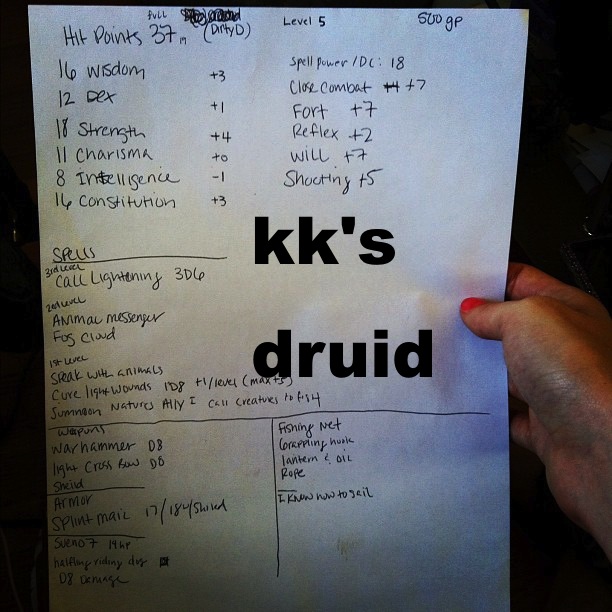 full
Level 5
500 gp
Hit Points 37
(Dirty D)
16 Wisdom +3
12 Dex +1
18 Strength +4
11 Charisma +0
8 Intelligence -1
16 Constitution +3
Spell power / DC: 18
Close Combat +7
Fort +7
Reflex +2
Will +7
Shooting +5
kk's
druid
Spells
3rd Level
Call Lightening 3D6
2nd Level
Animal messenger
Fog Cloud
1st Level
Speak with animals
Cure light wounds 1D8 +1/level (max +5)
Summon Natures Ally I Call Creatures to fight
Weapons
Warhammer D8
light Cross Bow D8
Sheild
Armor
Splint mail 17/18 w/Shield
14 hp
halfling riding dog
D8 Damage
Fishing Net
Grappling hook
lantern & oil
Rope
I know how to sail